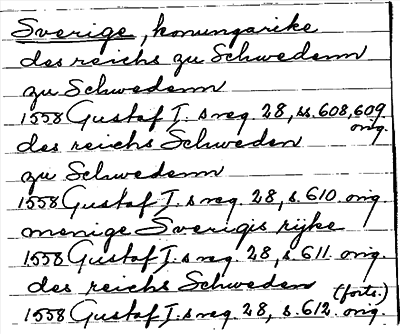 Sverige, konungarike
des reichs zu Schwedenn
zu Schwedenn
1558 Gustaf I.s reg. 28, ss. 608, 609 orig.
des reichs Schweden
zu Schwedenn
1558 Gustaf I.s reg. 28, s. 610 orig.
menige Sverigis rijke
1558 Gustaf I.s reg. 28, s. 611. orig.
des reichs Schweden (forts.)
1558 Gustaf I.s reg. 28, s. 612. orig.